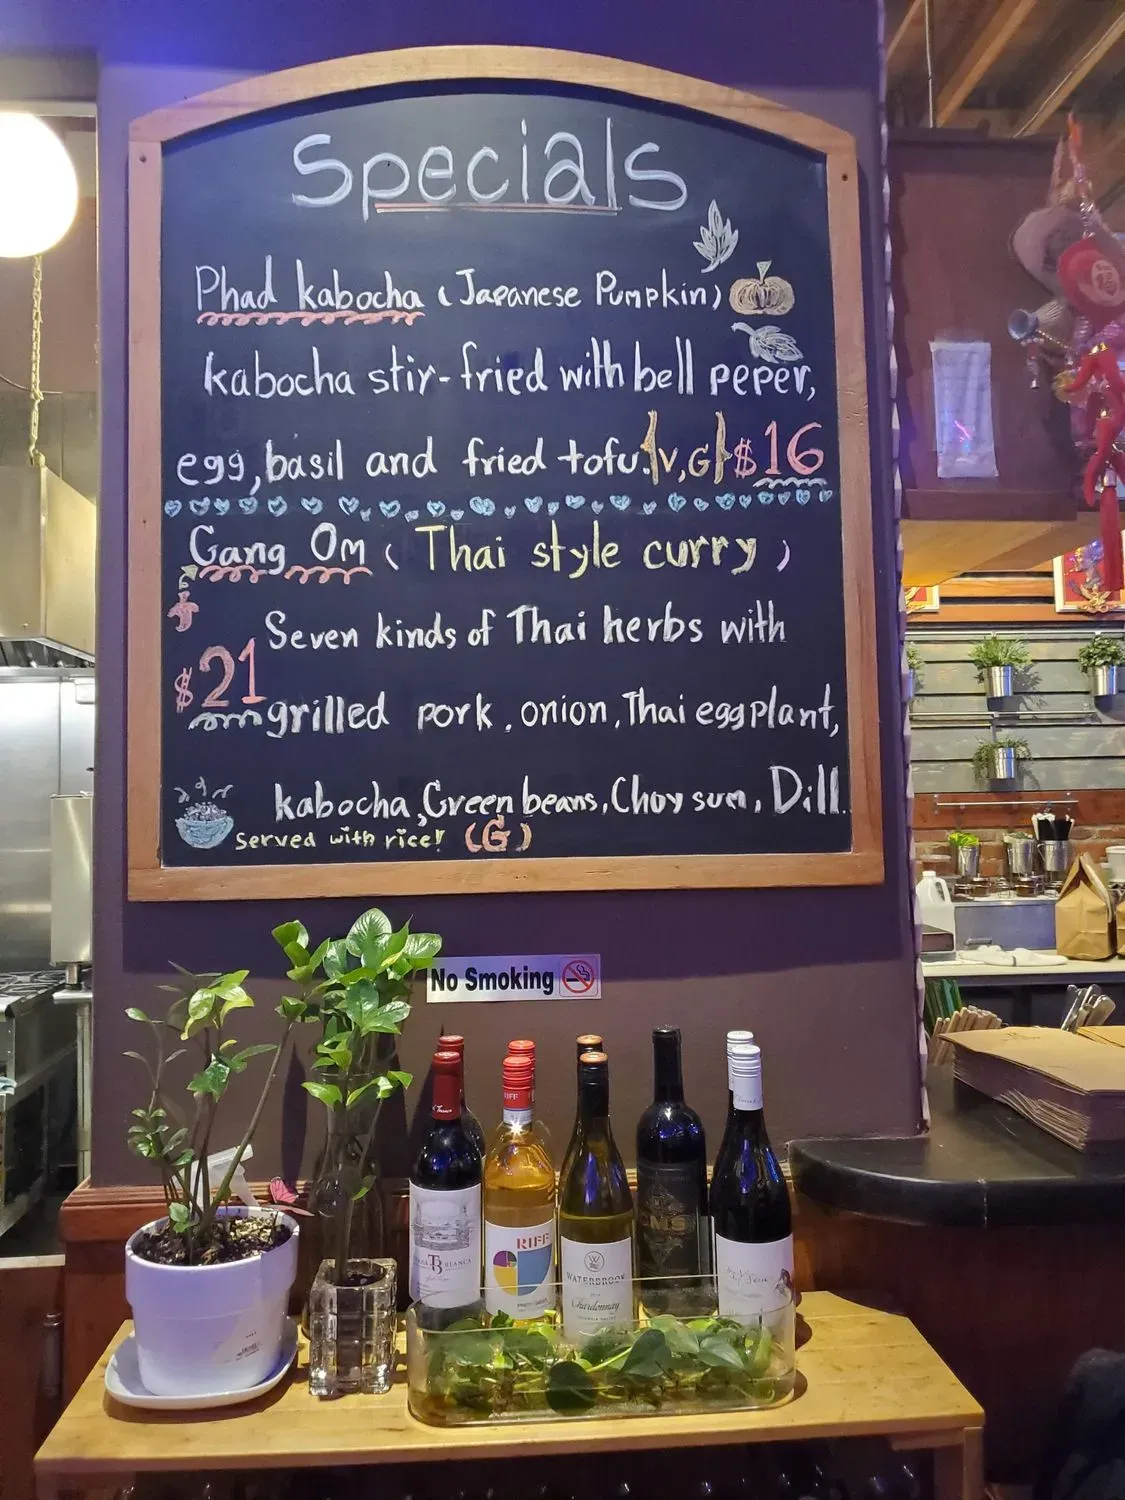 Specials
Phad kabocha (Japanese Pumpkin)
kabocha stir-fried with bell peper,
egg, basil and fried tofu. {V,G} $16
Gang Om ( Thai style curry )
Seven kinds of Thai herbs with
$21
grilled pork, onion, Thai eggplant,
kabocha, Green beans, Choy sum, Dill.
Served with rice! (G)
No Smoking
RIFF
TB
BLANCA
RIFF
CMS
W
WATERBROOK
Chardonnay